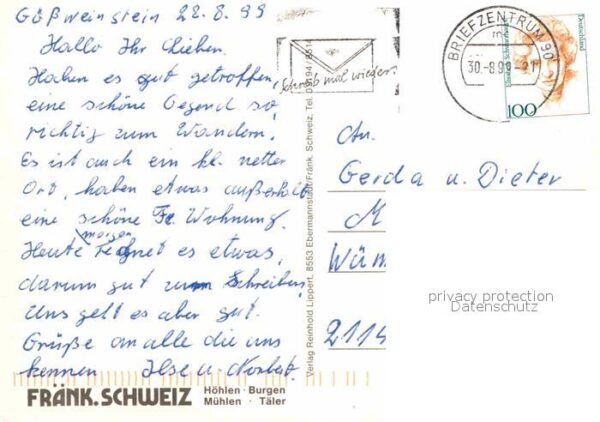 Gößweinstein 28.8.99
Hallo Ihr Lieben.
Haben es gut getroffen,
eine schöne Gegend so
richtig zum Wandern.
Es ist auch ein kl. netter
Ort, haben etwas außerhalb
eine schöne Fe. Wohnung.
morgen
Heute regnet es etwas,
darum gut zum Schreiben
Uns geht es aber gut.
Grüße an alle die uns
kennen Ilse u. Norbert.
FRÄNK. SCHWEIZ
Höhlen · Burgen
Mühlen · Täler
Verlag Reinhold Lippert, 8553 Ebermannstadt/Fränk. Schweiz, Tel.
Schreib mal wieder!
BRIEFZENTRUM 90
30.-8.99-21
Deutschland
100
An.
Gerda u. Dieter
M
Wüm
2114
privacy protection
Datenschutz